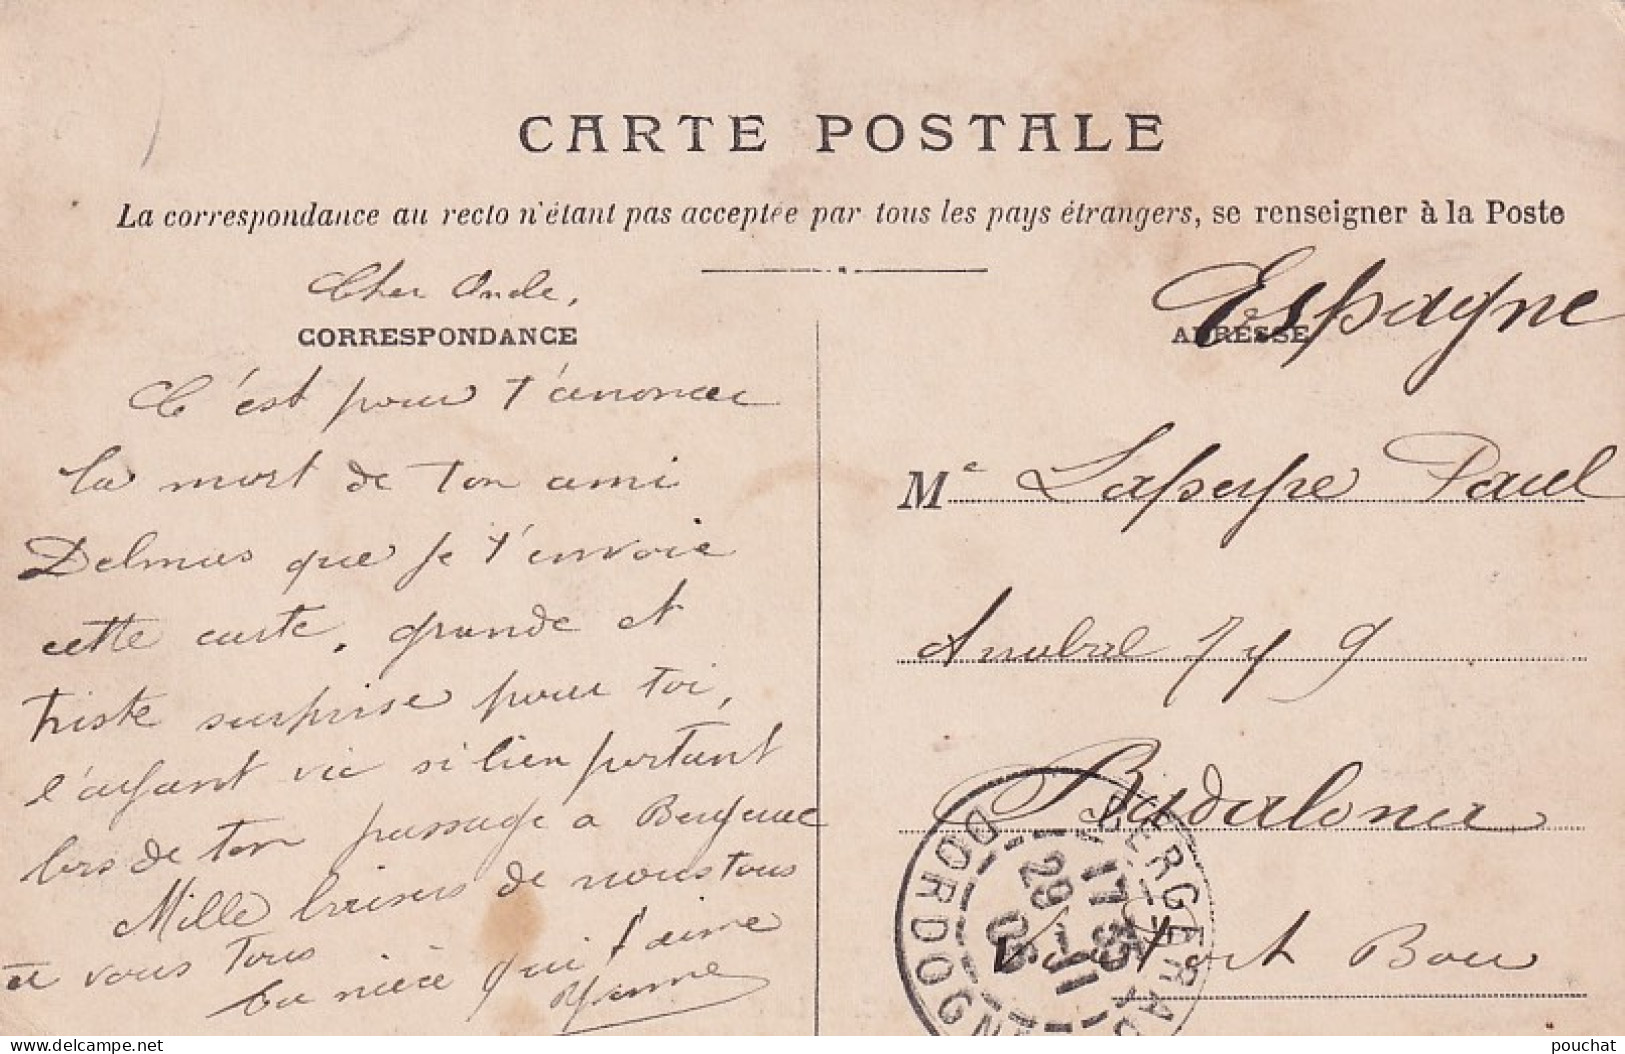 CARTE POSTALE
La correspondance au recto n'étant pas acceptée par tous les pays étrangers, se renseigner à la Poste
Cher Oncle,
CORRESPONDANCE
C'est pour t'anoncer
la mort de ton ami
Delmas que je t'envoie
cette carte, grande et
triste surprise pour toi,
l'ayant vu si bien portant
lors de ton passage a Bergerac
Mille baisers de nous tous
a vous tous
ta nièce qui t'aime
Yvonne
Espagne
ADRESSE
Me Lapeyre Paul
Anubal 7 y 9
Badalona
Via Port Bou
BERGERAC
17 35
29 -11
06
DORDOGNE
pouchat
delcampe.net